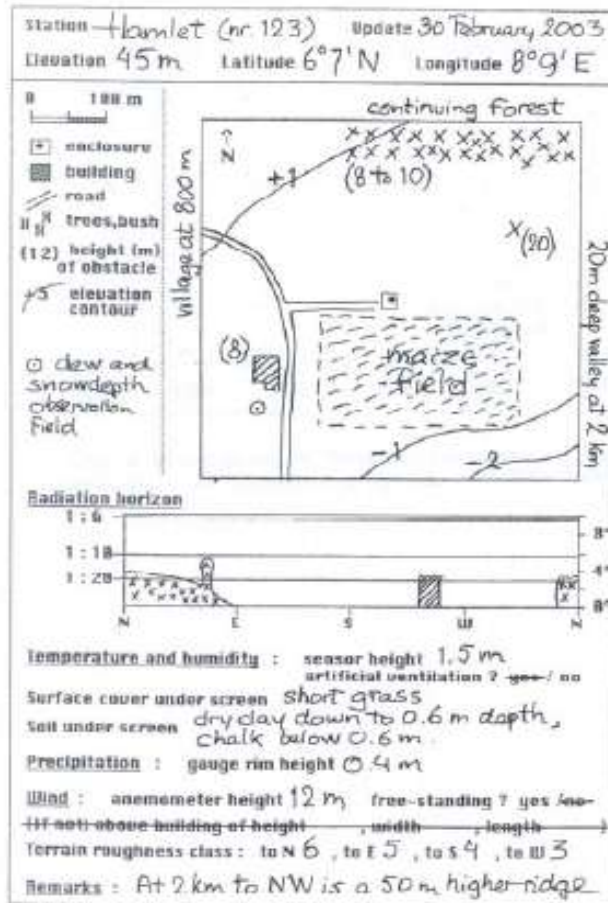 Station Hamlet (nr. 123) Update 30 February 2003
Elevation 45 m Latitude 6°7'N Longitude 8°9' E
0 100 m
enclosure
building
road
trees, bush
(12) height (m)
of obstacle
+5 elevation
contour
dew and
snowdepth
observation
field
continuing forest
village at 800 m
N
+1
(8 to 10)
x (20)
(8)
maize
field
-1
-2
20m deep valley at 2 km
Radiation horizon
1:6 8°
1:10
1:20 4°
0°
N E S W N
Temperature and humidity : sensor height 1.5 m
artificial ventilation ? yes / no
Surface cover under screen short grass
Soil under screen dry clay down to 0.6 m depth,
chalk below 0.6 m.
Precipitation : gauge rim height 0.4 m
Wind : anemometer height 12 m free-standing ? yes / no
(if not) above building of height , width , length
Terrain roughness class : to N 6 , to E 5 , to S 4 , to W 3
Remarks : At 2 km to NW is a 50 m higher ridge